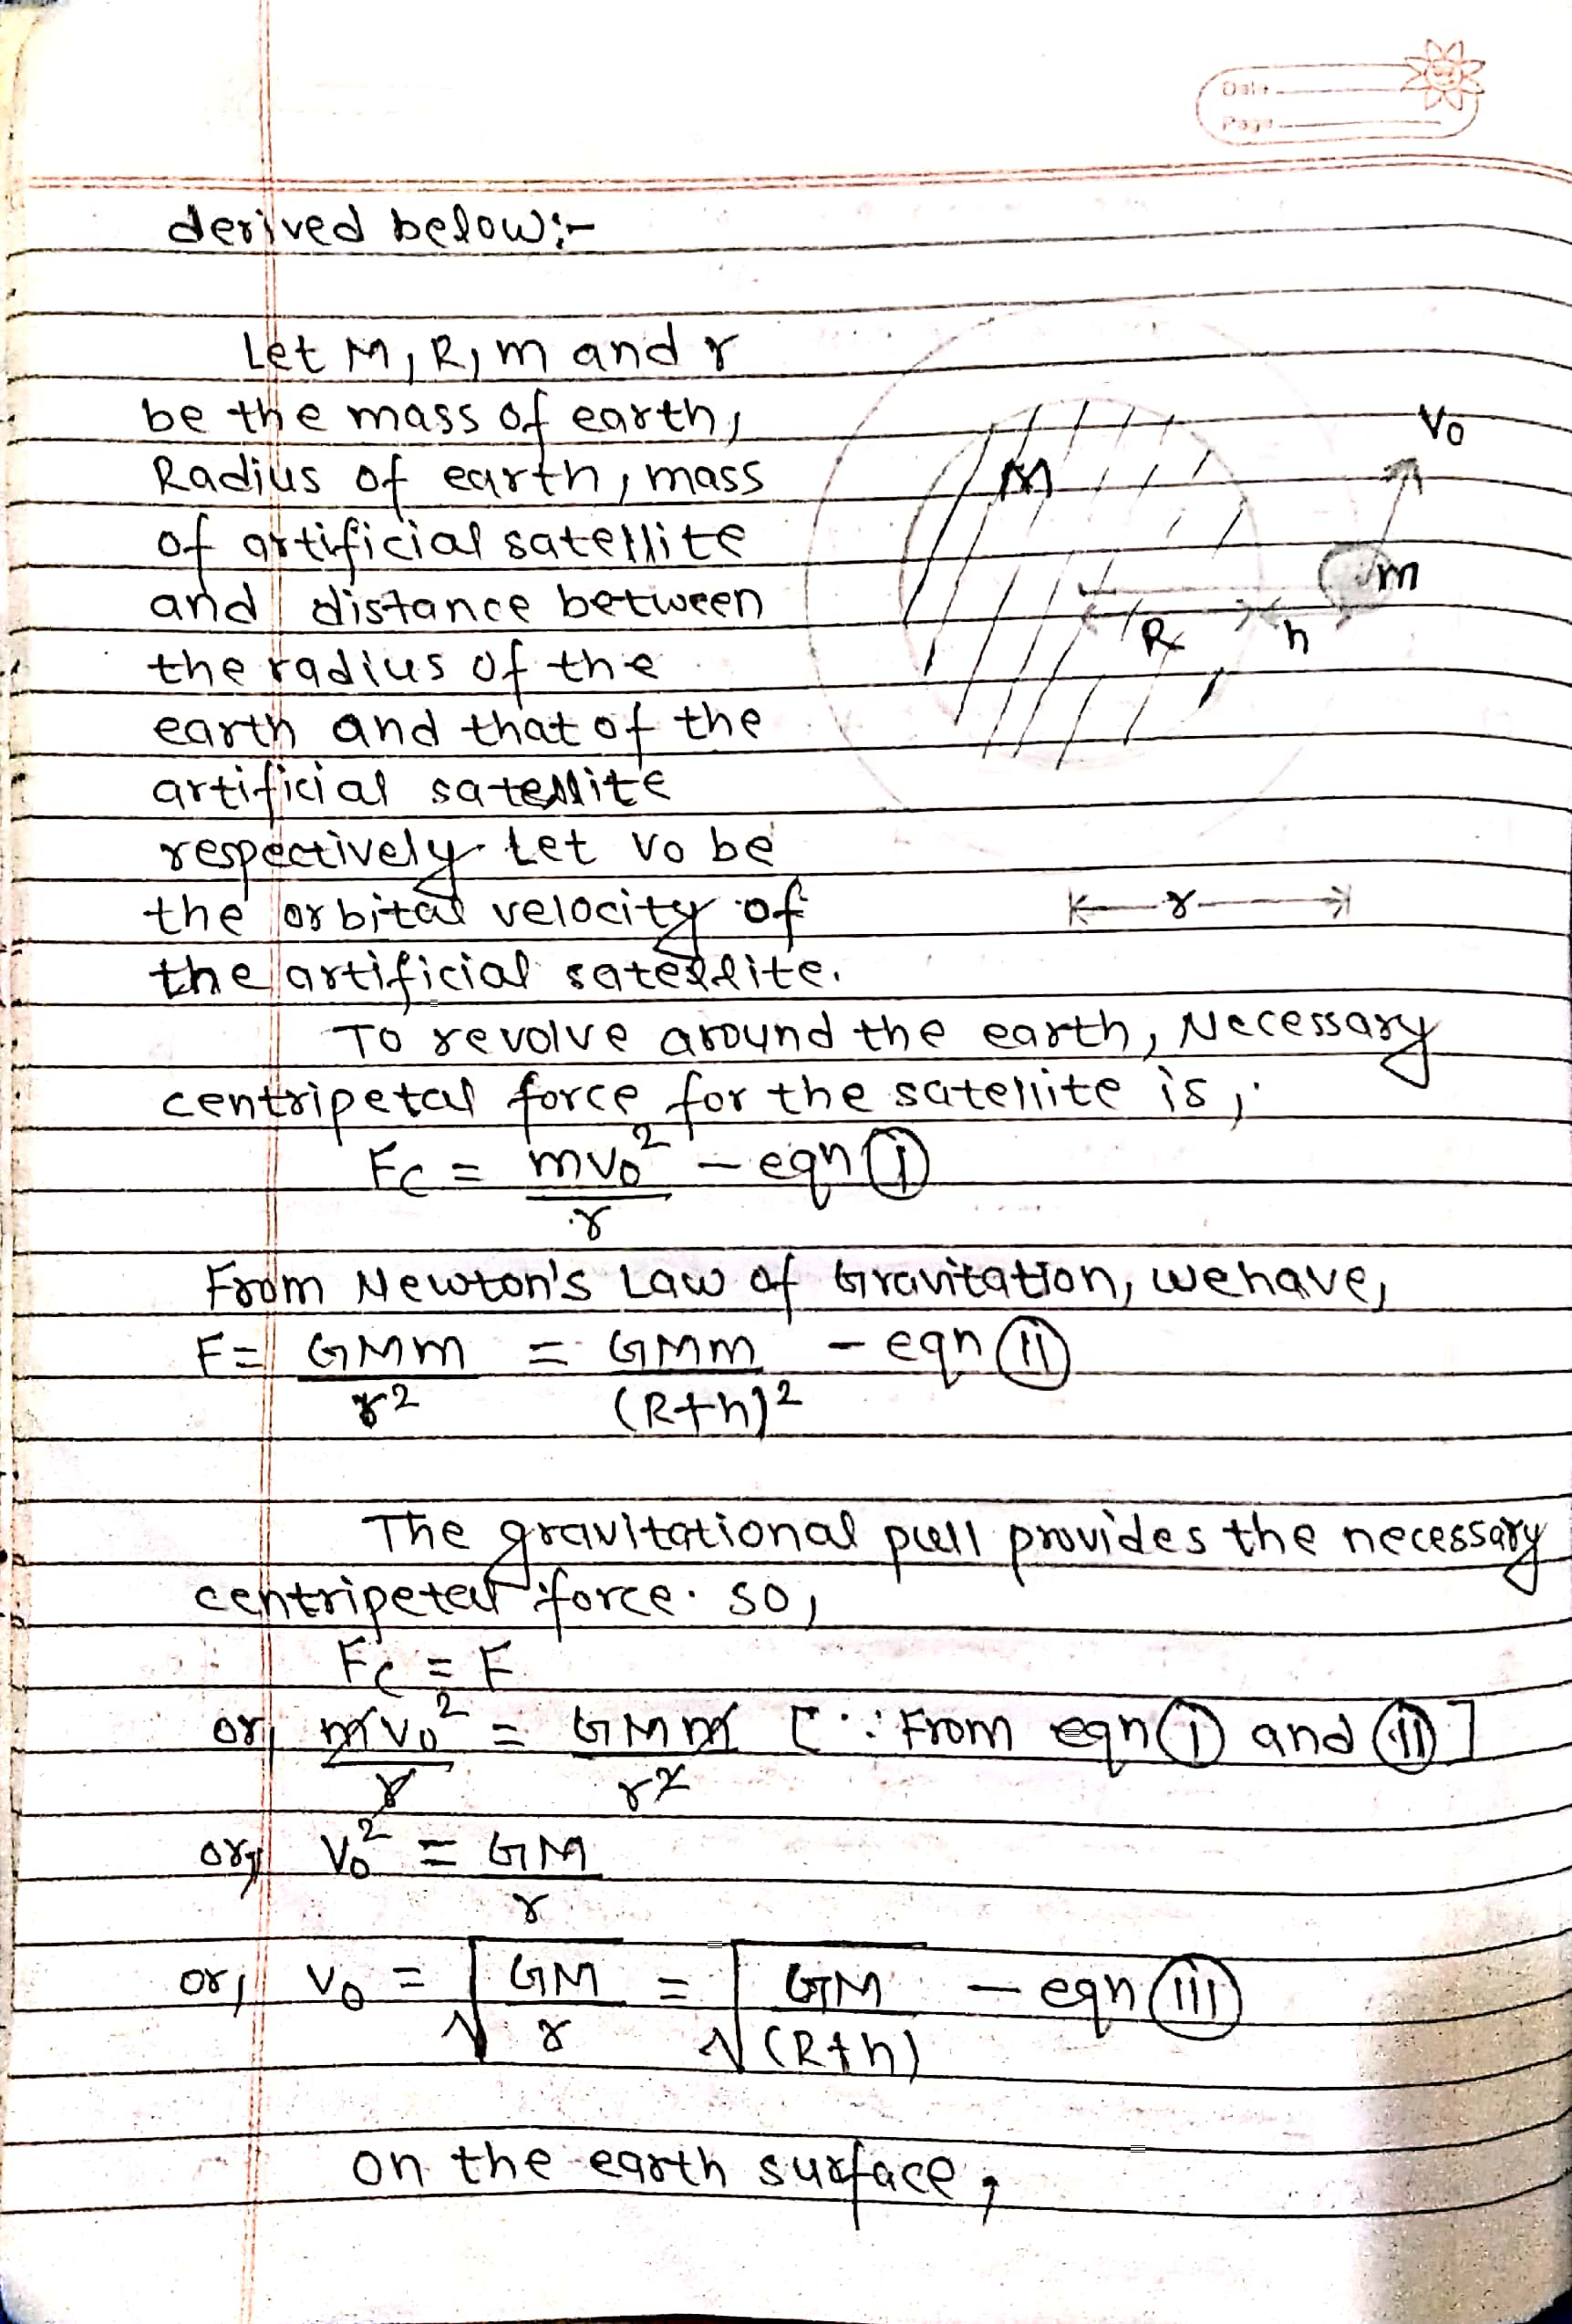 Date
Page
derived below:-
Let M, R, m and r
be the mass of earth,
Radius of earth, mass
of artificial satellite
and distance between
the radius of the
earth and that of the
artificial satellite
respectively Let vo be
the orbital velocity of
the artificial satellite.
M
Vo
m
R
h
r
To revolve around the earth, Necessary
centripetal force for the satellite is,
Fc = mvo² - eqn (i)
r
From Newton's Law of Gravitation, we have,
F = GMm = GMm - eqn (ii)
r² (R+h)²
The gravitational pull provides the necessary
centripetal force. so,
Fc = F
or, mvo² = GMm [∵ From eqn (i) and (ii)]
r r²
or, Vo² = GM
r
or, Vo = √GM = √GM - eqn (iii)
r (R+h)
on the earth surface,